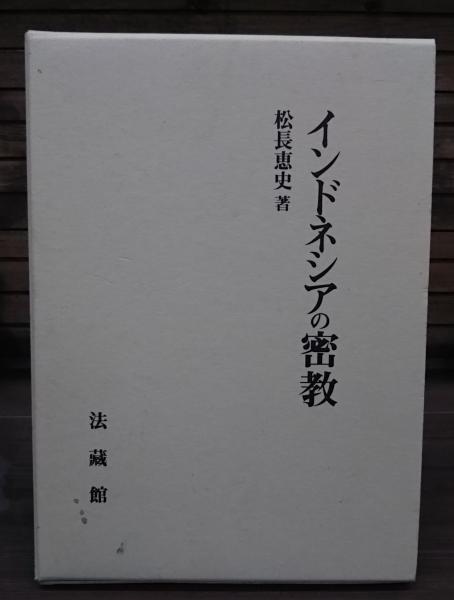 インドネシアの密教
松長恵史 著
法藏館